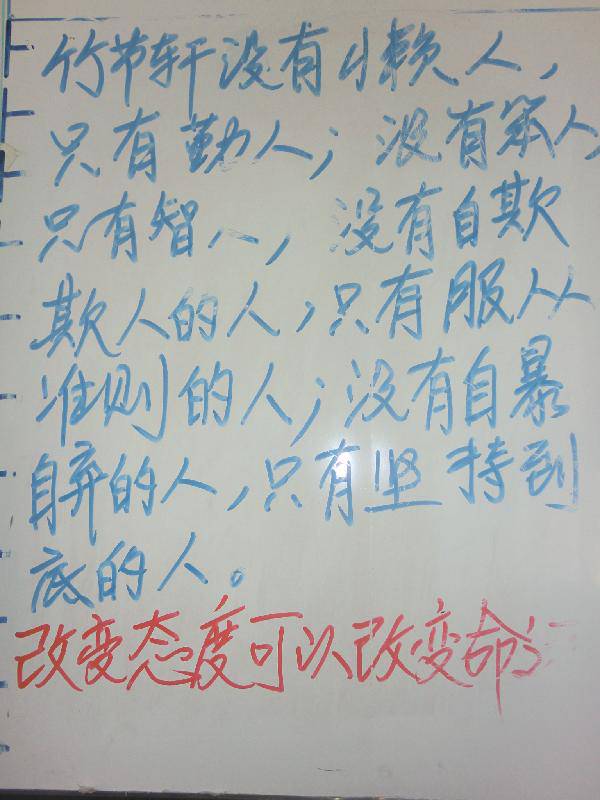 竹节轩没有小懒人,
只有勤人;没有笨人,
只有智人,没有自欺
欺人的人,只有服从
准则的人;没有自暴
自弃的人,只有坚持到
底的人。
改变态度可以改变命